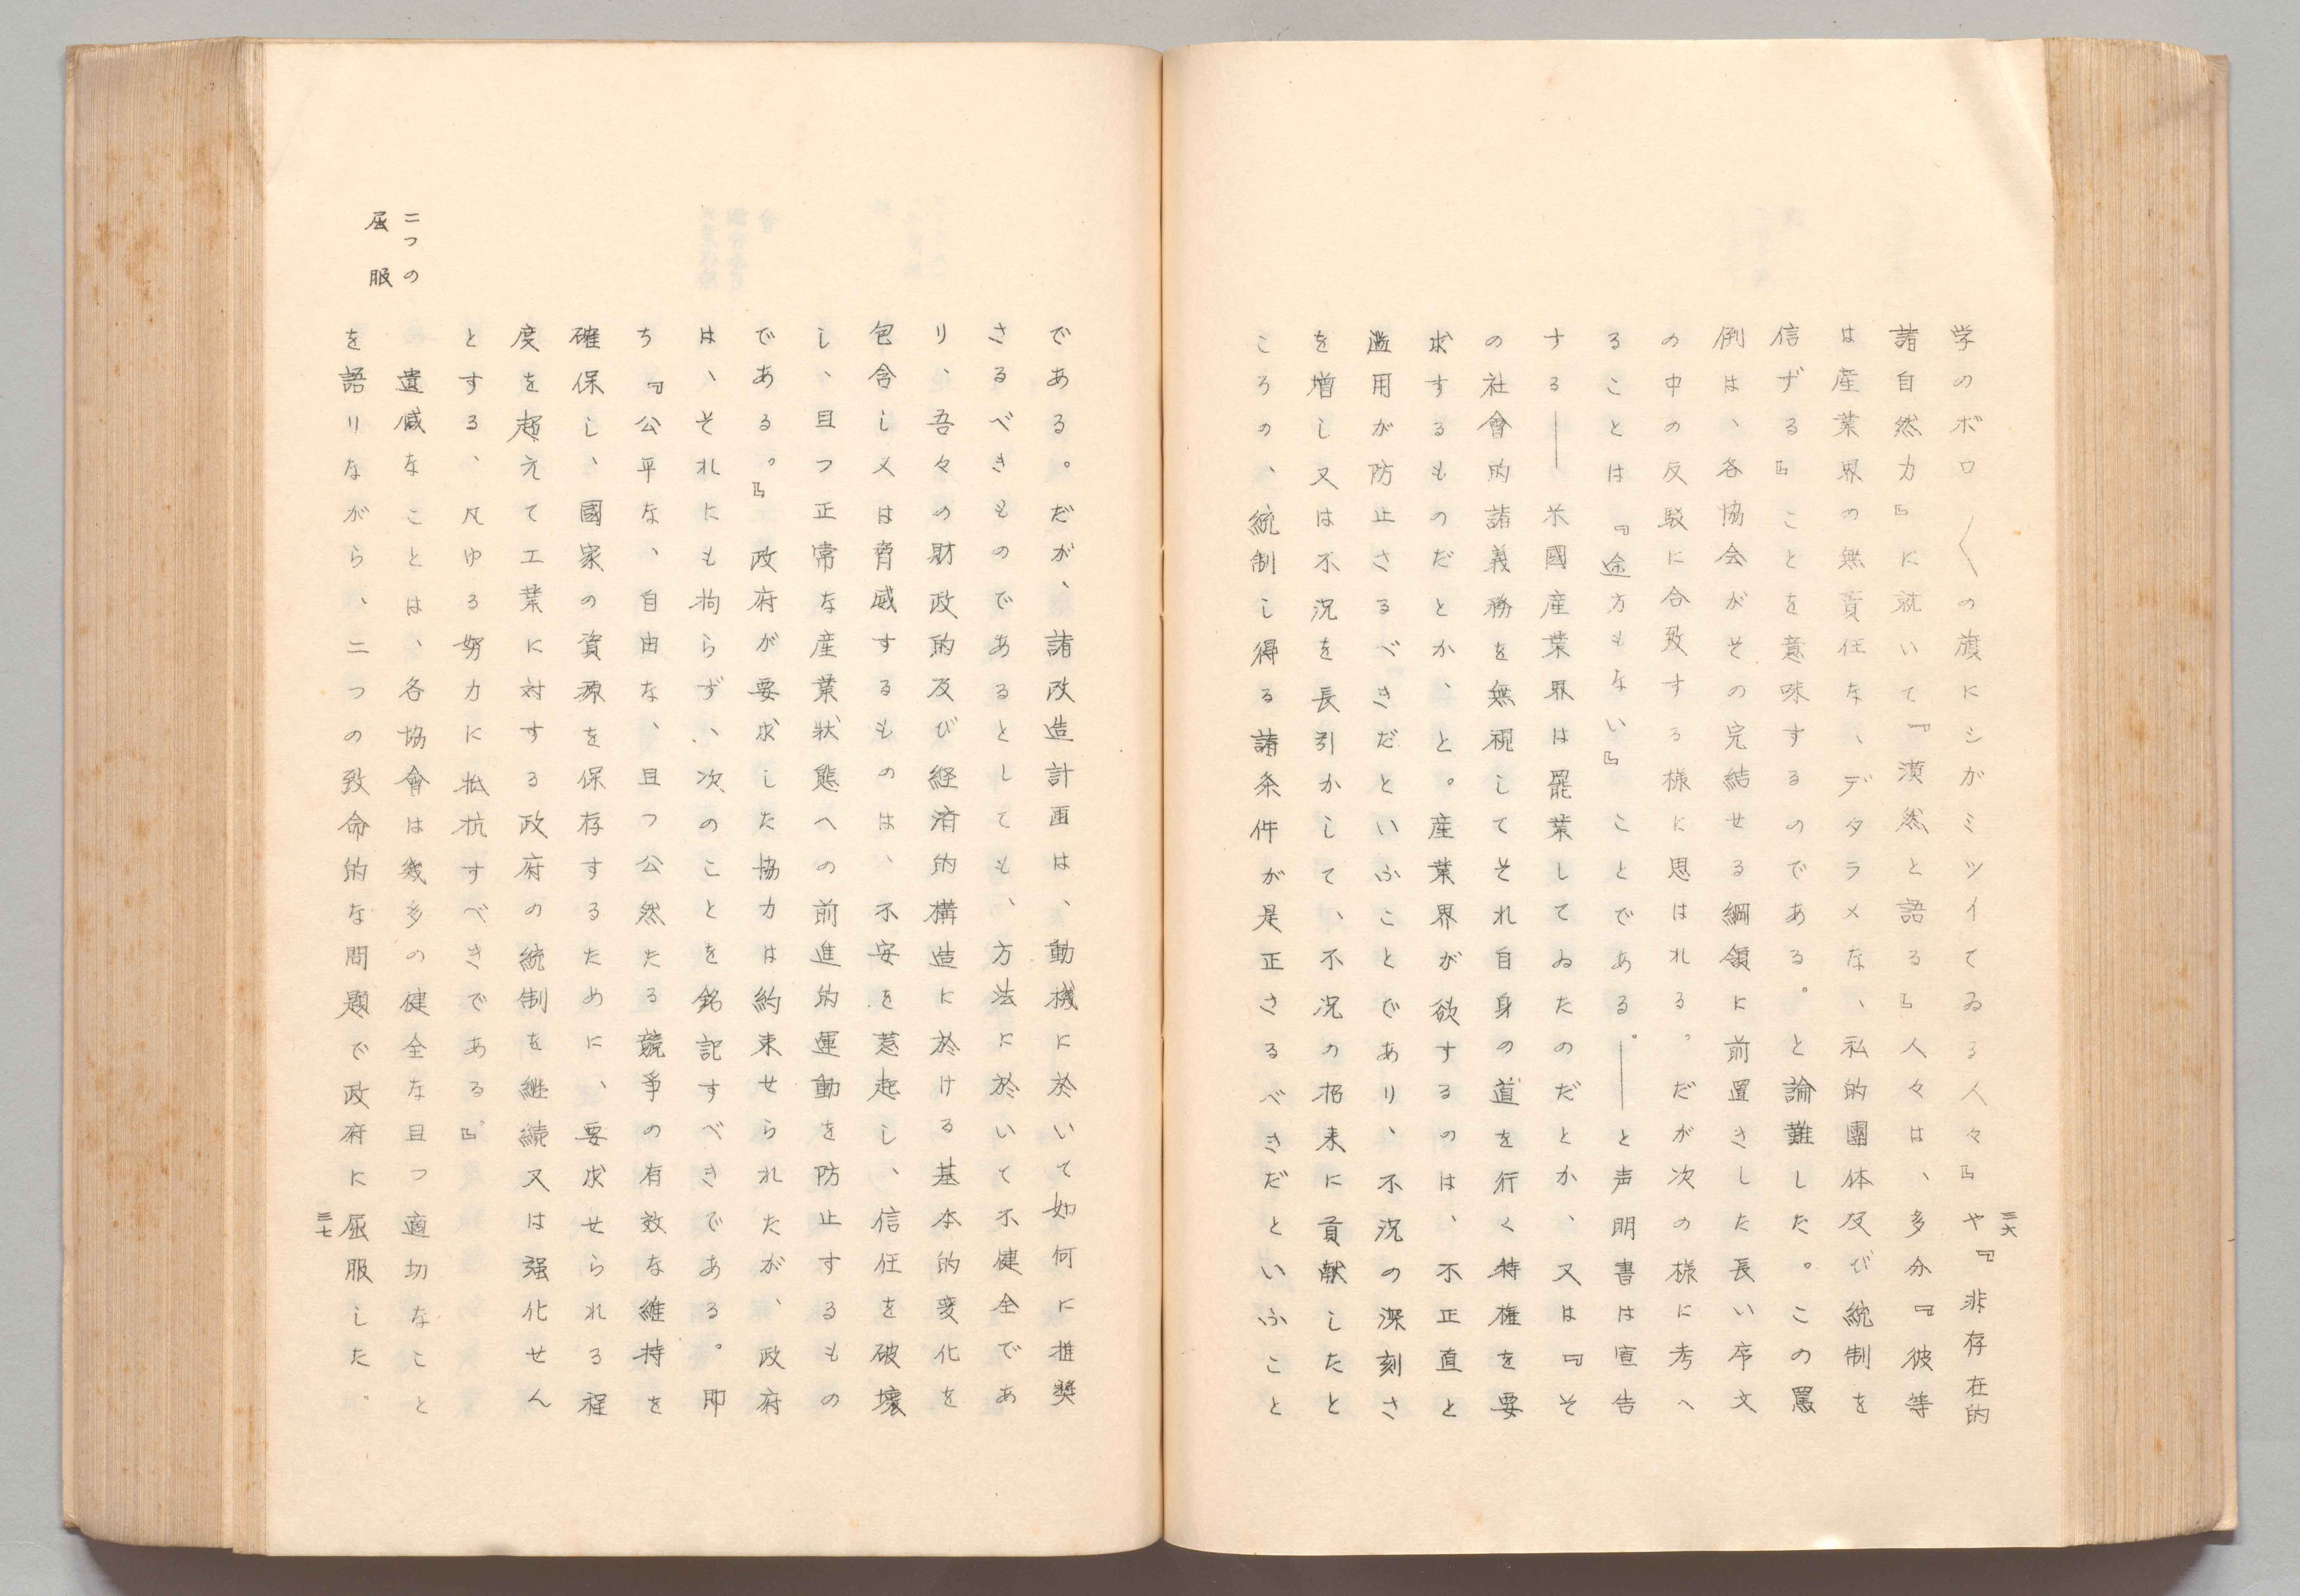 三六
学のボロ〱の旗にシガミツイてゐる人々』や『非存在的
諸自然力』に就いて『漠然と語る』人々は、多分『彼等
は産業界の無責任な、デタラメな、私的團体及び統制を
信ずる』ことを意味するのである。と論難した。この罵
倒は、各協会がその完結せる綱領に前置きした長い序文
の中の反駁に合致する様に思はれる。だが次の様に考へ
ることは『途方もない』ことである。――と声明書は宣告
する――米國産業界は罷業してゐたのだとか、又は『そ
の社會的諸義務を無視してそれ自身の道を行く特権を要
求するものだとか、と。産業界が欲するのは、不正直と
濫用が防止さるべきだといふことであり、不況の深刻さ
を増し又は不況を長引かして、不況の招来に貢献したと
ころの、統制し得る諸条件が是正さるべきだといふこと
である。だが、諸改造計画は、動機に於いて如何に推奨
さるべきものであるとしても、方法に於いて不健全であ
り、吾々の財政的及び経済的構造に於ける基本的変化を
包含し又は脅威するものは、不安を惹起し、信任を破壊
し、且つ正常な産業状態への前進的運動を防止するもの
である。』政府が要求した協力は約束せられたが、政府
は、それにも拘らず、次のことを銘記すべきである。即
ち『公平な、自由な、且つ公然たる競争の有效な維持を
確保し、國家の資源を保存するために、要求せられる程
度を超えて工業に対する政府の統制を継続又は强化せん
とする、凡ゆる努力に抵抗すべきである。』
二つの
屈服
遺憾なことは、各協會は幾多の健全な且つ適切なこと
を語りながら、二つの致命的な問題で政府に屈服した。
三七